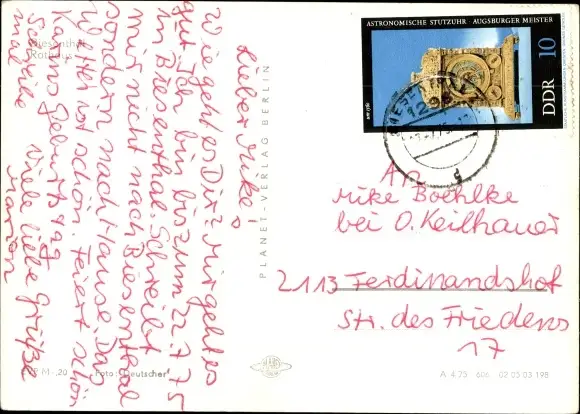 Lieber Mike!
Wie geht es Dir? Mir geht es
gut. Ich bin bis zum 22.7.75
in Biesenthal. Schreibt
mir nicht nach Biesenthal
sondern nach Hause. Das
Wetter ist schön. Feiert schön
Karins Geburtstag
Viele liebe Grüße
Marion
Biesenthal
Rathaus
PLANET-VERLAG BERLIN
ASTRONOMISCHE STUTZUHR · AUGSBURGER MEISTER
DDR 10
An
Mike Boehlke
bei O. Keilhauer
2113 Ferdinandshof
Str. des Friedens
17
P M -,20
Foto: Deutscher
A 4 75 606 02 05 03 198